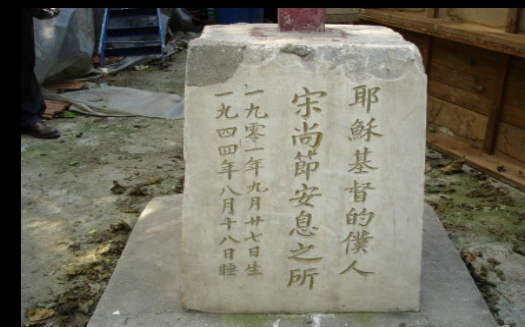 耶穌基督的僕人
宋尚節安息之所
一九零一年九月廿七日生
一九四四年八月十八日睡